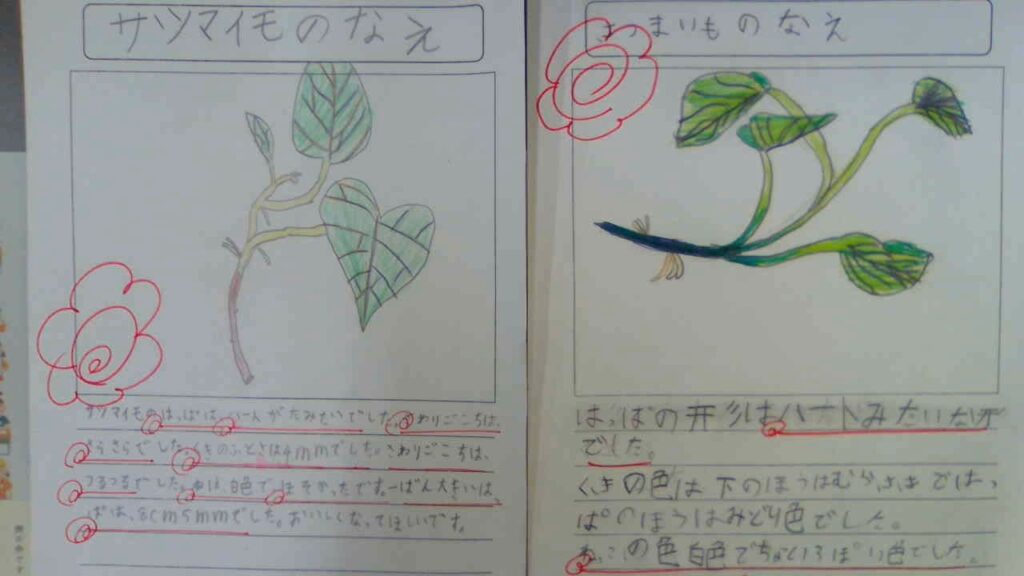 サツマイモのなえ
サツマイモのはっぱは、ハートがたみたいでした。さわりごこちは、
さらさらでした。くきのふとさは4mmでした。さわりごこちは、
つるつるでした。は、白色でほそかったです。一ばん大きいは、
ぱは、8cm5mmでした。おいしくなってほしいです。
さつまいものなえ
はっぱの形はハートみたいな形
でした。
くきの色は下のほうはむらさきではっ
ぱのほうはみどり色でした。
の色白色でちゃいろっぽい色でした。